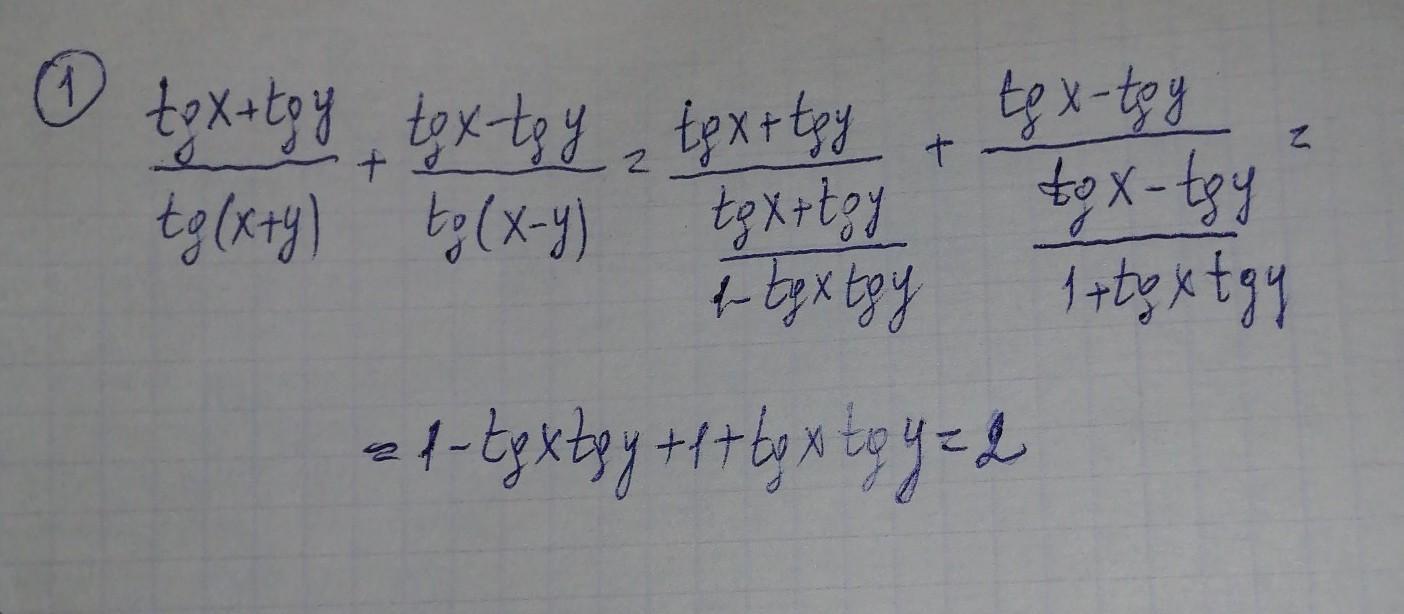 ① (tgx+tgy)/(tg(x+y)) + (tgx-tgy)/(tg(x-y)) = (tgx+tgy)/((tgx+tgy)/(1-tgxtgy)) + (tgx-tgy)/((tgx-tgy)/(1+tgxtgy)) =
= 1-tgxtgy+1+tgxtgy=2